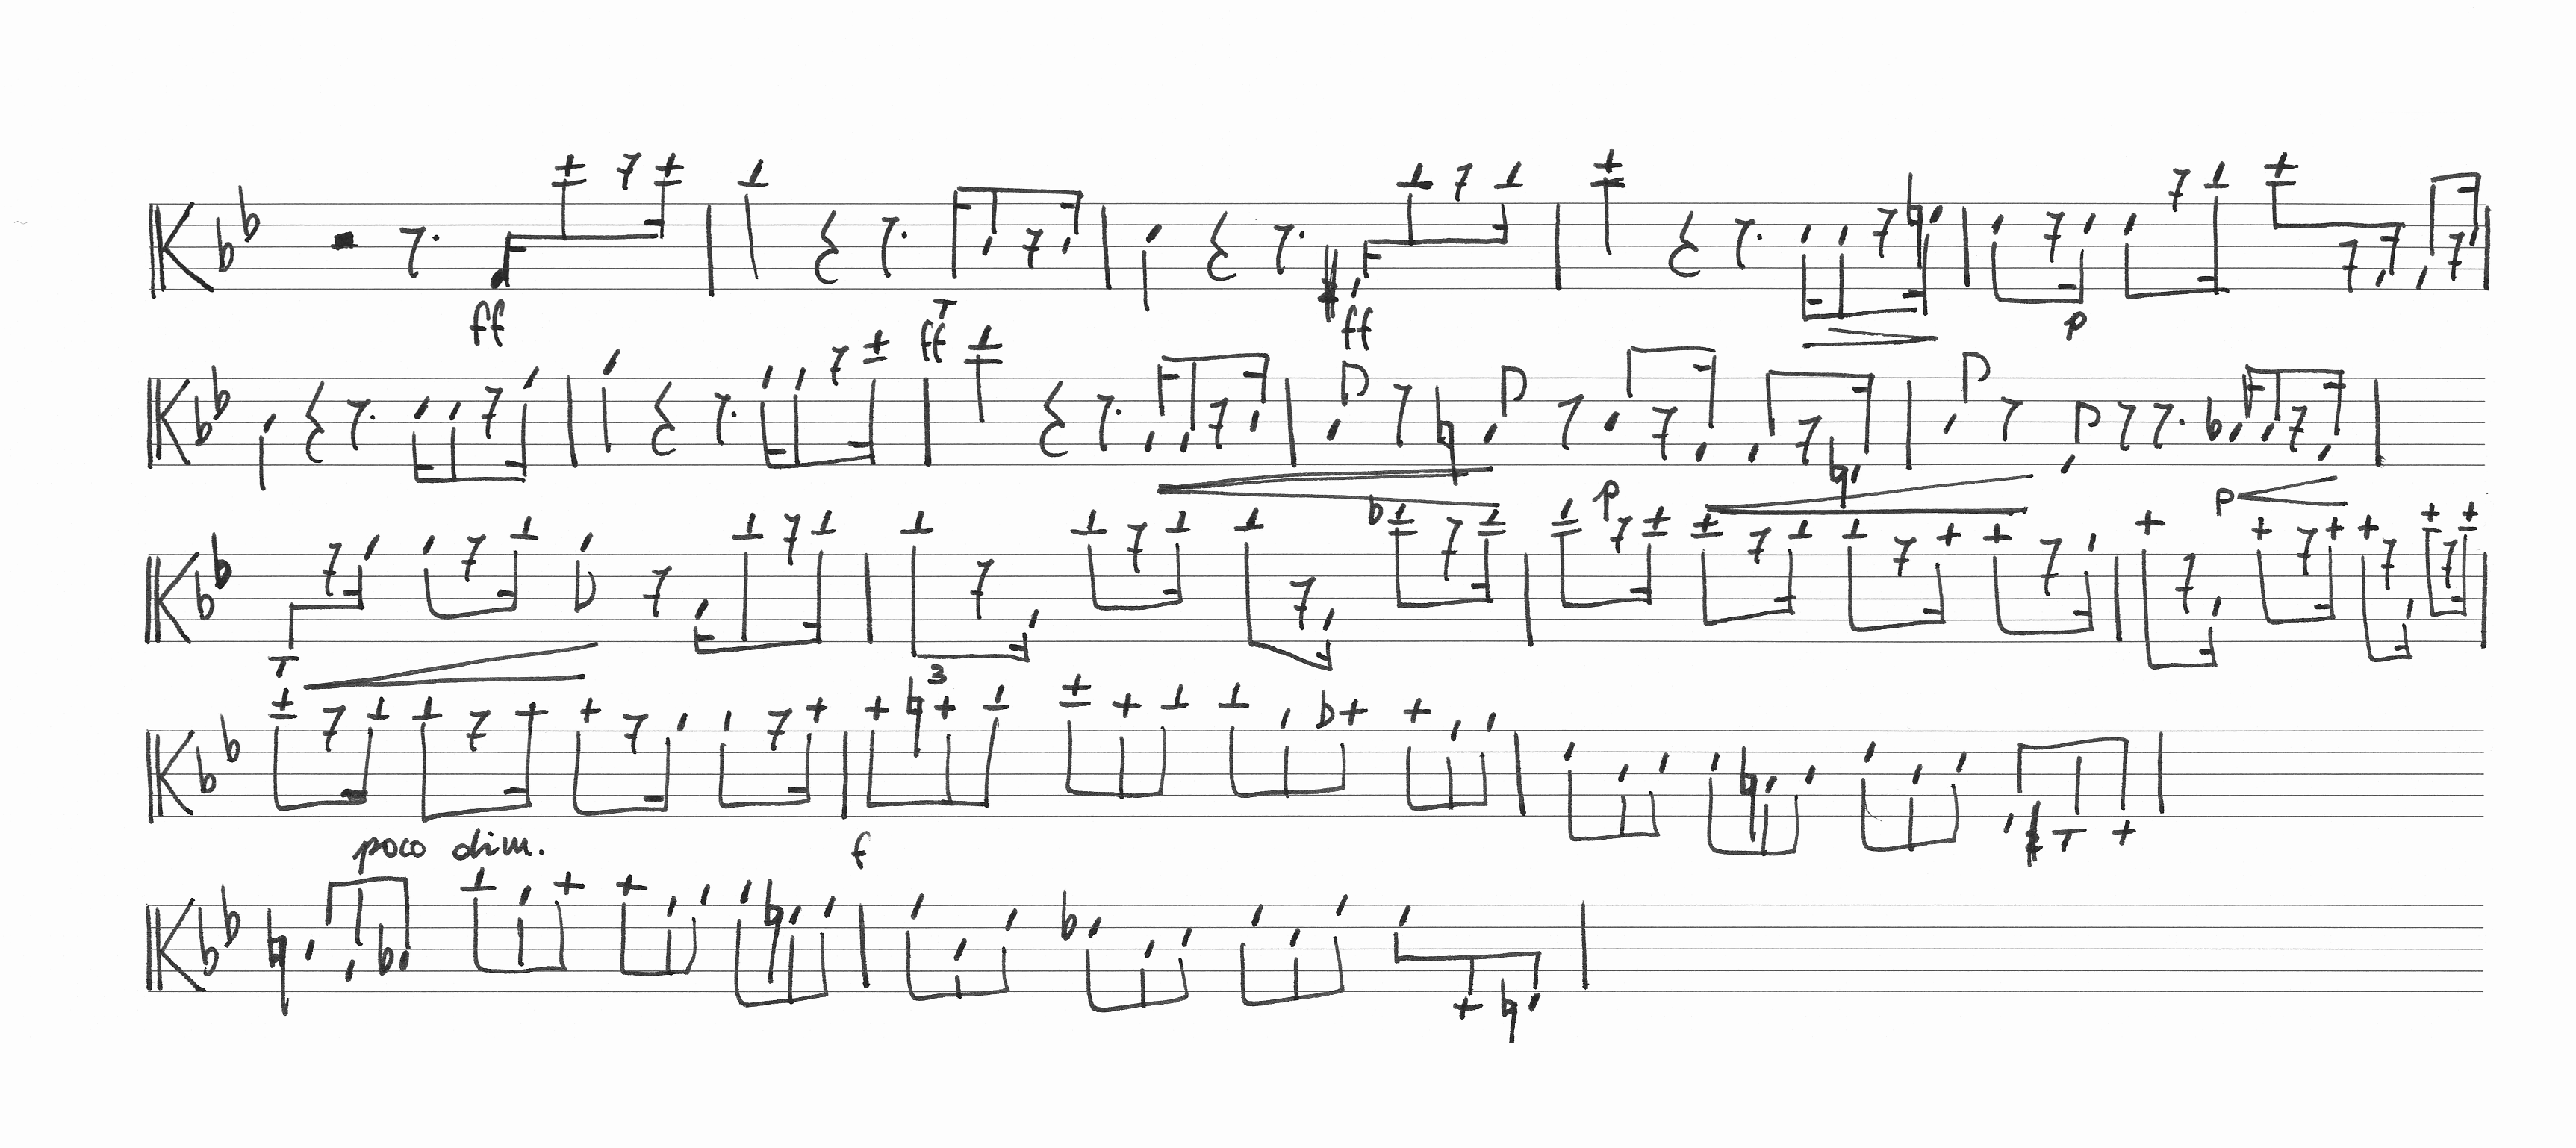 ff ff p
ff
p p
3
poco dim. f